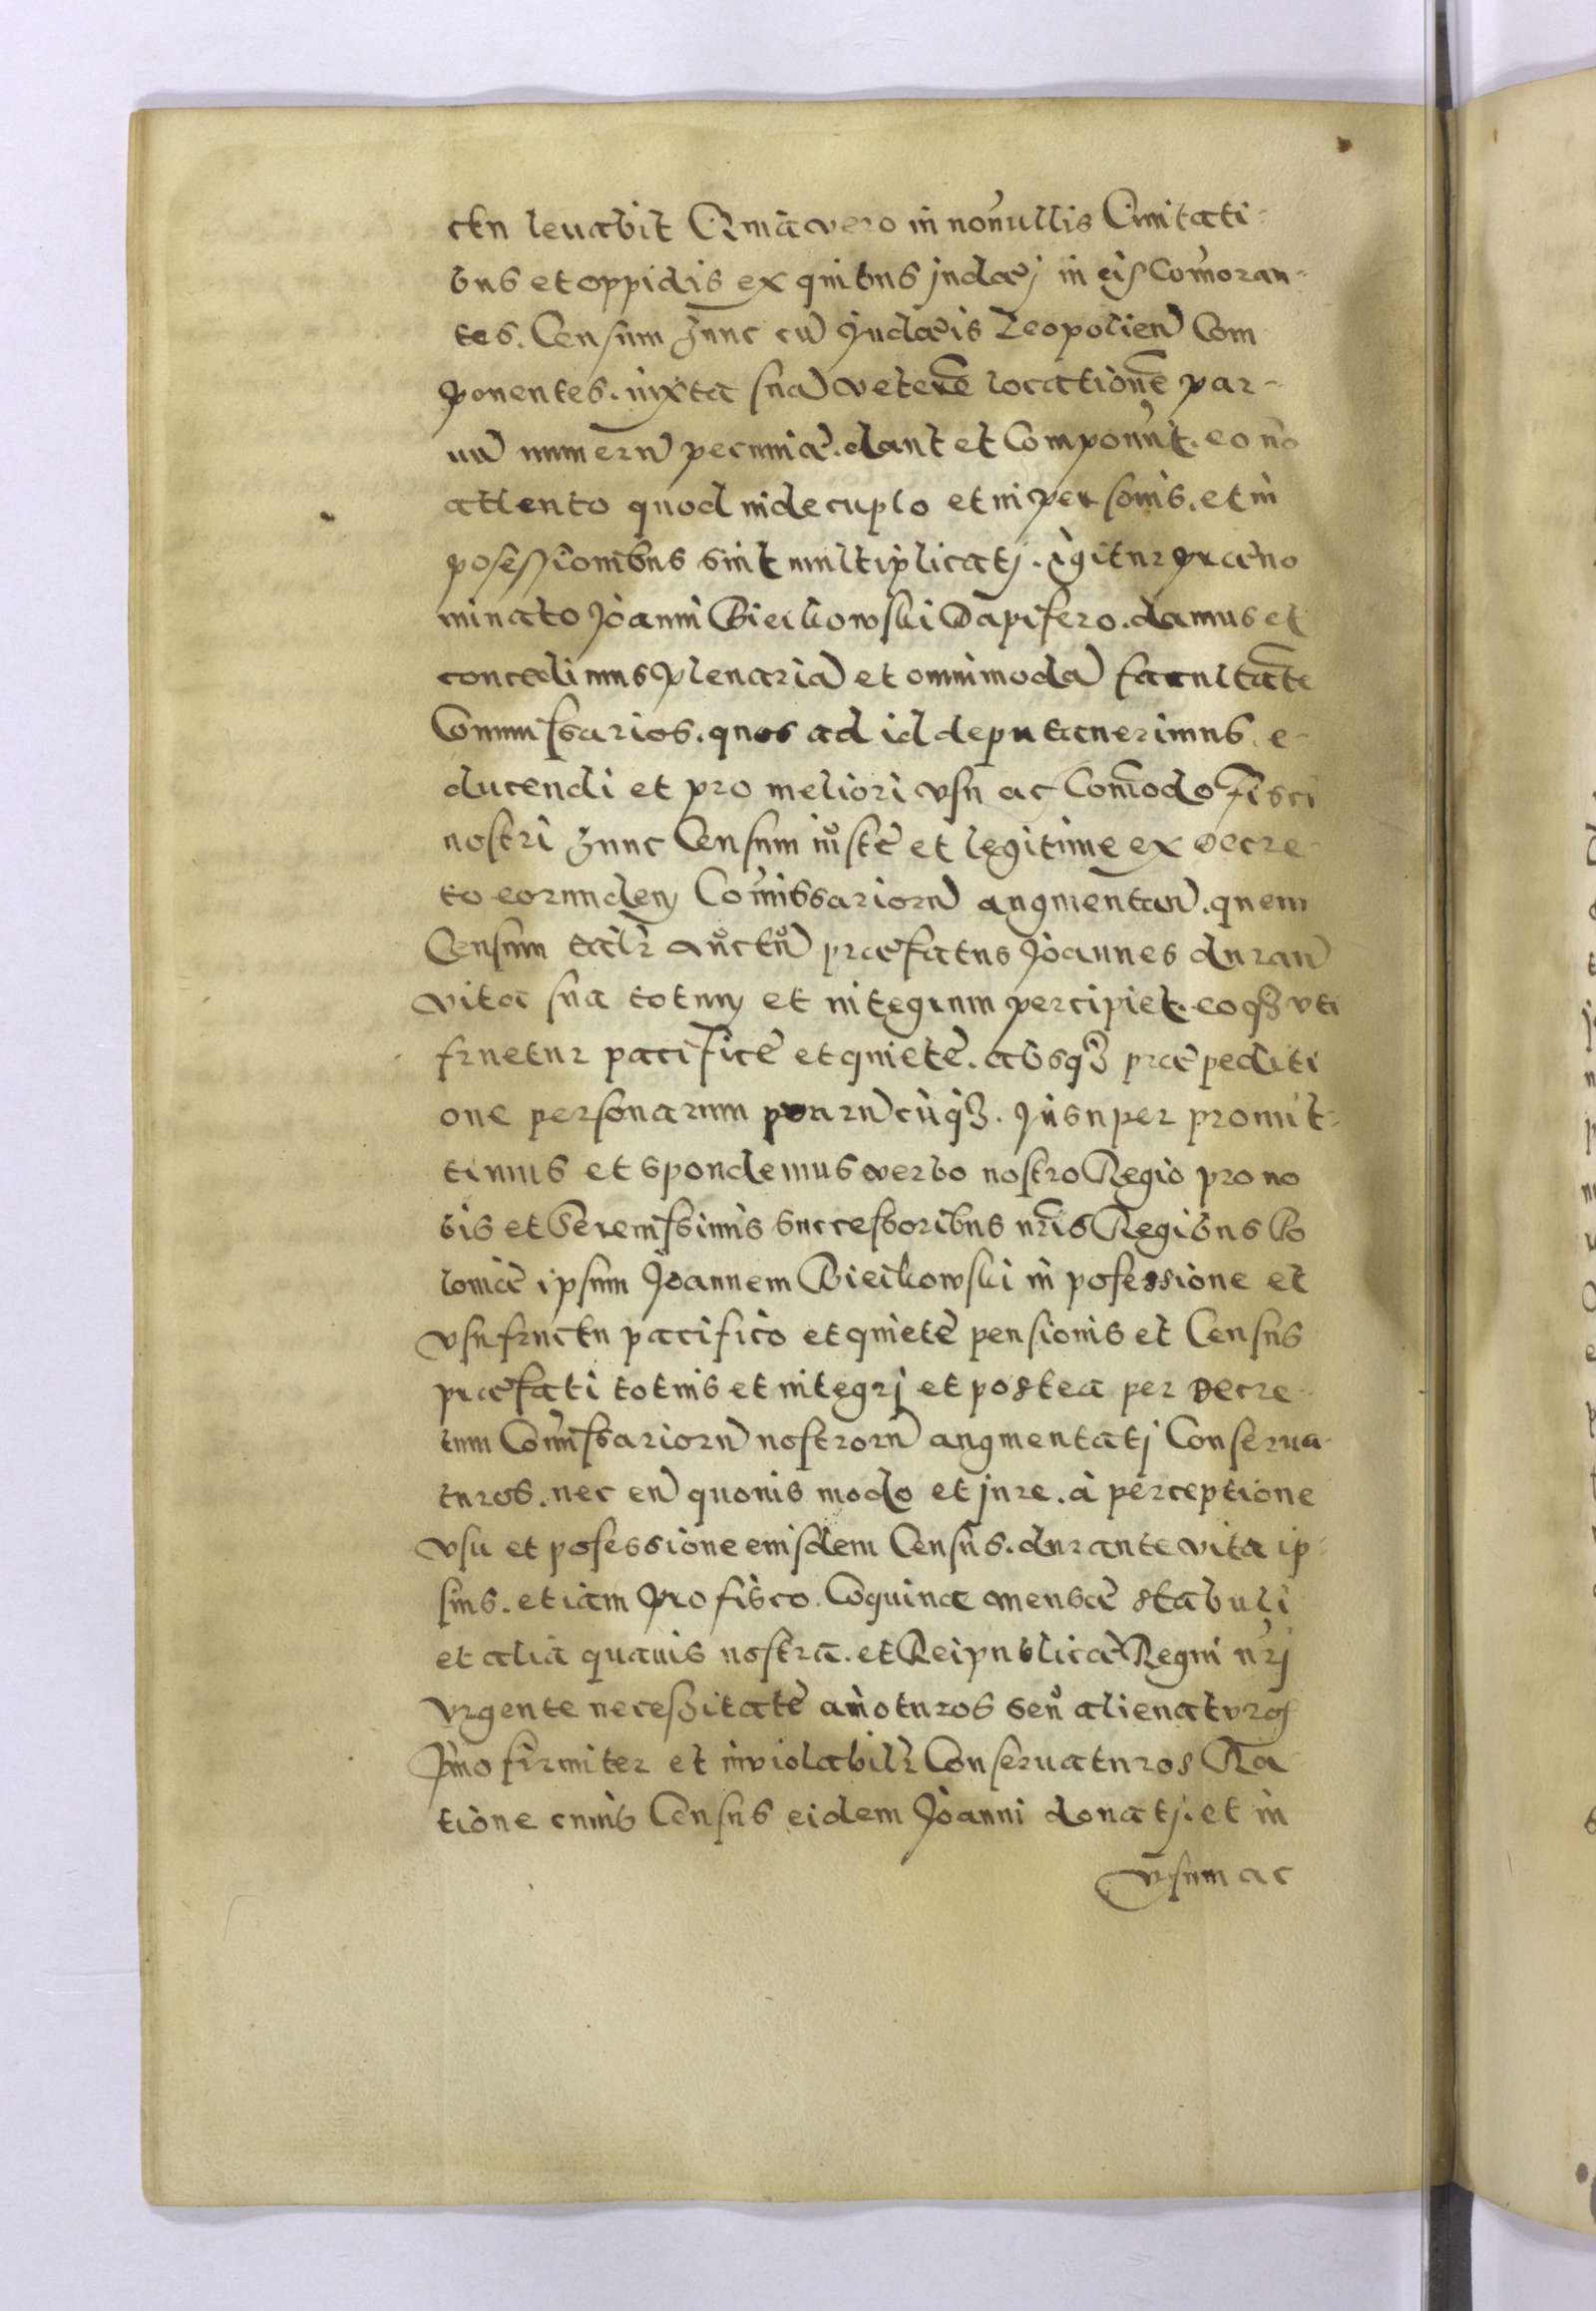 ctu leuabit Quia vero in nonnullis Ciuitati-
bus et oppidis ex quibus judæj in eis Com̃oran-
tes. Censum hunc cũ Judæis Leopolien̄ Com
ponentes. iuxta suā veterē locationē par-
uũ numerũ pecuniæ. dant et Componũt. eo nō
attento quod in decuplo et in personis. et in
possessionibus sint multiplicatj. igitur præno
minato Joanni Bieikowski Dapifero. damus et
concedimus plenariā et omnimodā facultātē
Commissarios. quos ad id deputauerimus, e-
ducendi et pro meliori vsu ac Com̃odo Fisci
nostri hunc Censum iustè et legitime ex decre-
to eorundem Com̃issariorũ augmentan̄. quem
Censum talr̃ auctũ præfatus Joannes duran̄
vita sua totum et integrum percipiet. eoqȝ vti
fruetur pacificè et quietè. absqȝ præpediti
one personarum quarũcũqȝ. Insuper promit-
timus et spondemus verbo nostro Regio pro no
bis et Serenissimis Successoribus nr̃is Regibus Po
loniæ ipsum Joannem Bieikowski in posessione et
vsufructu pacifico et quietè pensionis et Census
præfati totius et integrj et postea per decre-
tum Com̃issariorũ nostrorũ augmentatj Conserua-
turos. nec eũ quouis modo et jure. à perceptione
vsu et posessione eiusdem Censùs. durante vita ip-
sius. etiam pro fisco. Coquina mensæ stabuli
et alia quauis nostra. et Reipublicæ Regni nr̃j
vrgente necessitate amoturos seu alienaturos
Imo firmiter et inviolabilr̃ Conseruaturos Ra
tione cuius Census eidem Joanni donatj. et in
vsum ac